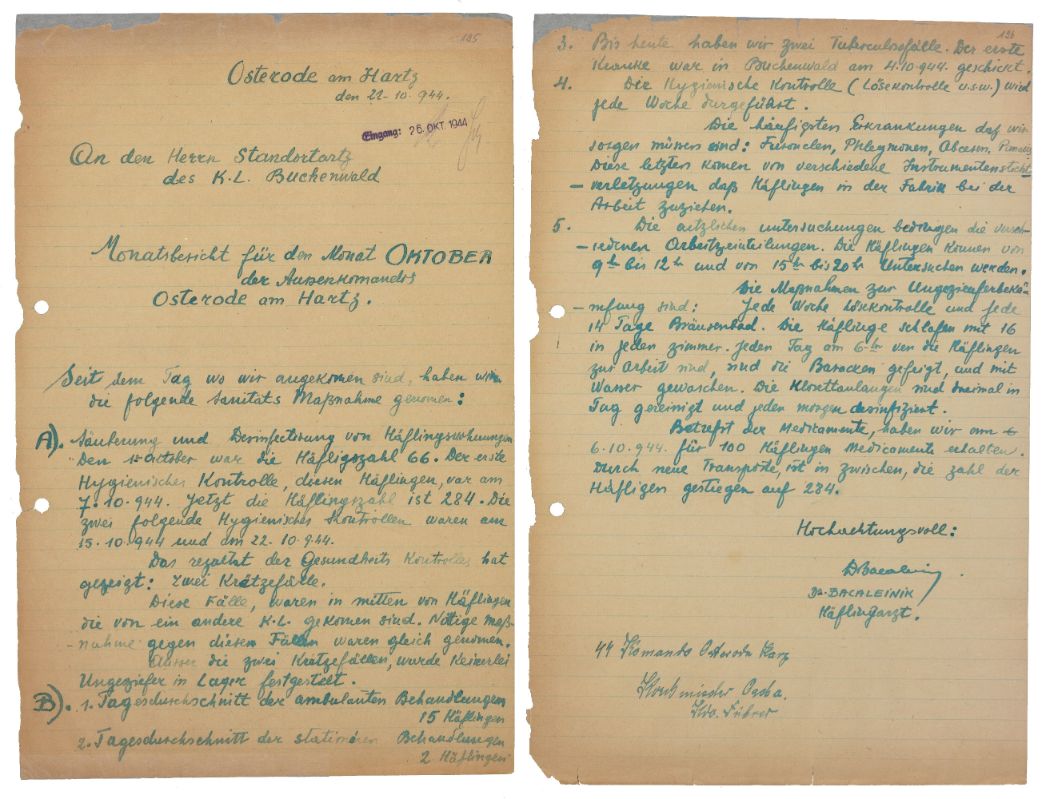 195
Osterode am Hartz
den 22-10-944.
Eingang: 26. OKT. 1944
An den Herrn Standortartz
des K.L. Buckenwald
Monatsbericht für den Monat OKTOBER
der Aussenkomandos
Osterode am Hartz.
Seit dem Tag wo wir angekomen sind, haben wir
die folgende Sanitats Maßnahme genomen:
A). Säuberung und Desinfectirung von Häflingswohnungen
Den 1st October war die Häfligszahl 66. Der erste
Hygienisches Kontrolle, diesen Häflingen, var am
7.10.944. Jetzt die Häflingszahl ist 284. Die
zwei folgende Hygienisches Kontrollen waren am
15.10.944 und am 22.10.944.
Das rezaltat der Gesundheits Kontrolles hat
gezeigt: zwei Krätzefälle.
Diese Fälle, waren in mitten von Häflingen
die von ein andere K.L. gekomen sind. Nötige maß-
-nahme gegen diesen Fällen waren gleich genomen.
Ausser die zwei Krätzefällen, wurde keinerlei
Ungeziefer in Lager festgestelt.
B). 1. Tagesdurchschnitt der ambulanten Behandlungen
15 Häflingen
2. Tagesdurchschnitt der stationären Behandlungen
2 Häflingen
196
3. Bis heute haben wir zwei Tuberculosefälle. Der erste
Kranke war in Buchenwald am 4.10.944 geschickt.
4. Die Hygienische Kontrolle (Lösekontrolle u.s.w.) wird
jede Woche durgeführt.
Die häufigsten Erkrankungen daß wir
sorgen müssen sind: Furonclen, Phlegmonen, Abcesen,
Diese letzten komen von verschiedene Instrumentensticht
-verletzungen daß Häflingen in der Fabrik bei der
Arbeit zuziehen.
5. Die aetzlichen untersuchungen bedrengen die versch-
-iedenen Arbeitzeinteilungen. Die Häflingen können von
9 hr bis 12 hr und von 15 hr bis 20 hr Untersuchen werden.
Die Maßnahmen zur Ungeziefersbekä-
-mfung sind: Jede Woche Lösekontrolle und jede
14 Tage Bräusenbad. Die Häflinge schlafen mit 16
in jeden zimmer. Jeden Tag am 6 hr ven die Häflingen
zur Arbeit sind, sind die Baracken gefeigt, und mit
Wasser gewaschen. Die Klosettanlangen sind dreimal in
Tag gereinigt und jeden morgen desinfiziert.
Betreft der Medicamente, haben wir am
6.10.944 für 100 Häflingen Medicamente erhalten.
Durch neue Transporte, ist in zwischen, die zahl der
Häfligen gestiegen auf 284.
Hochachtungsvoll:
DrBacaleinig
Dr. BACALEINIK
Häflingarzt.
44 Komando Osterode Harz
Kdo. Führer